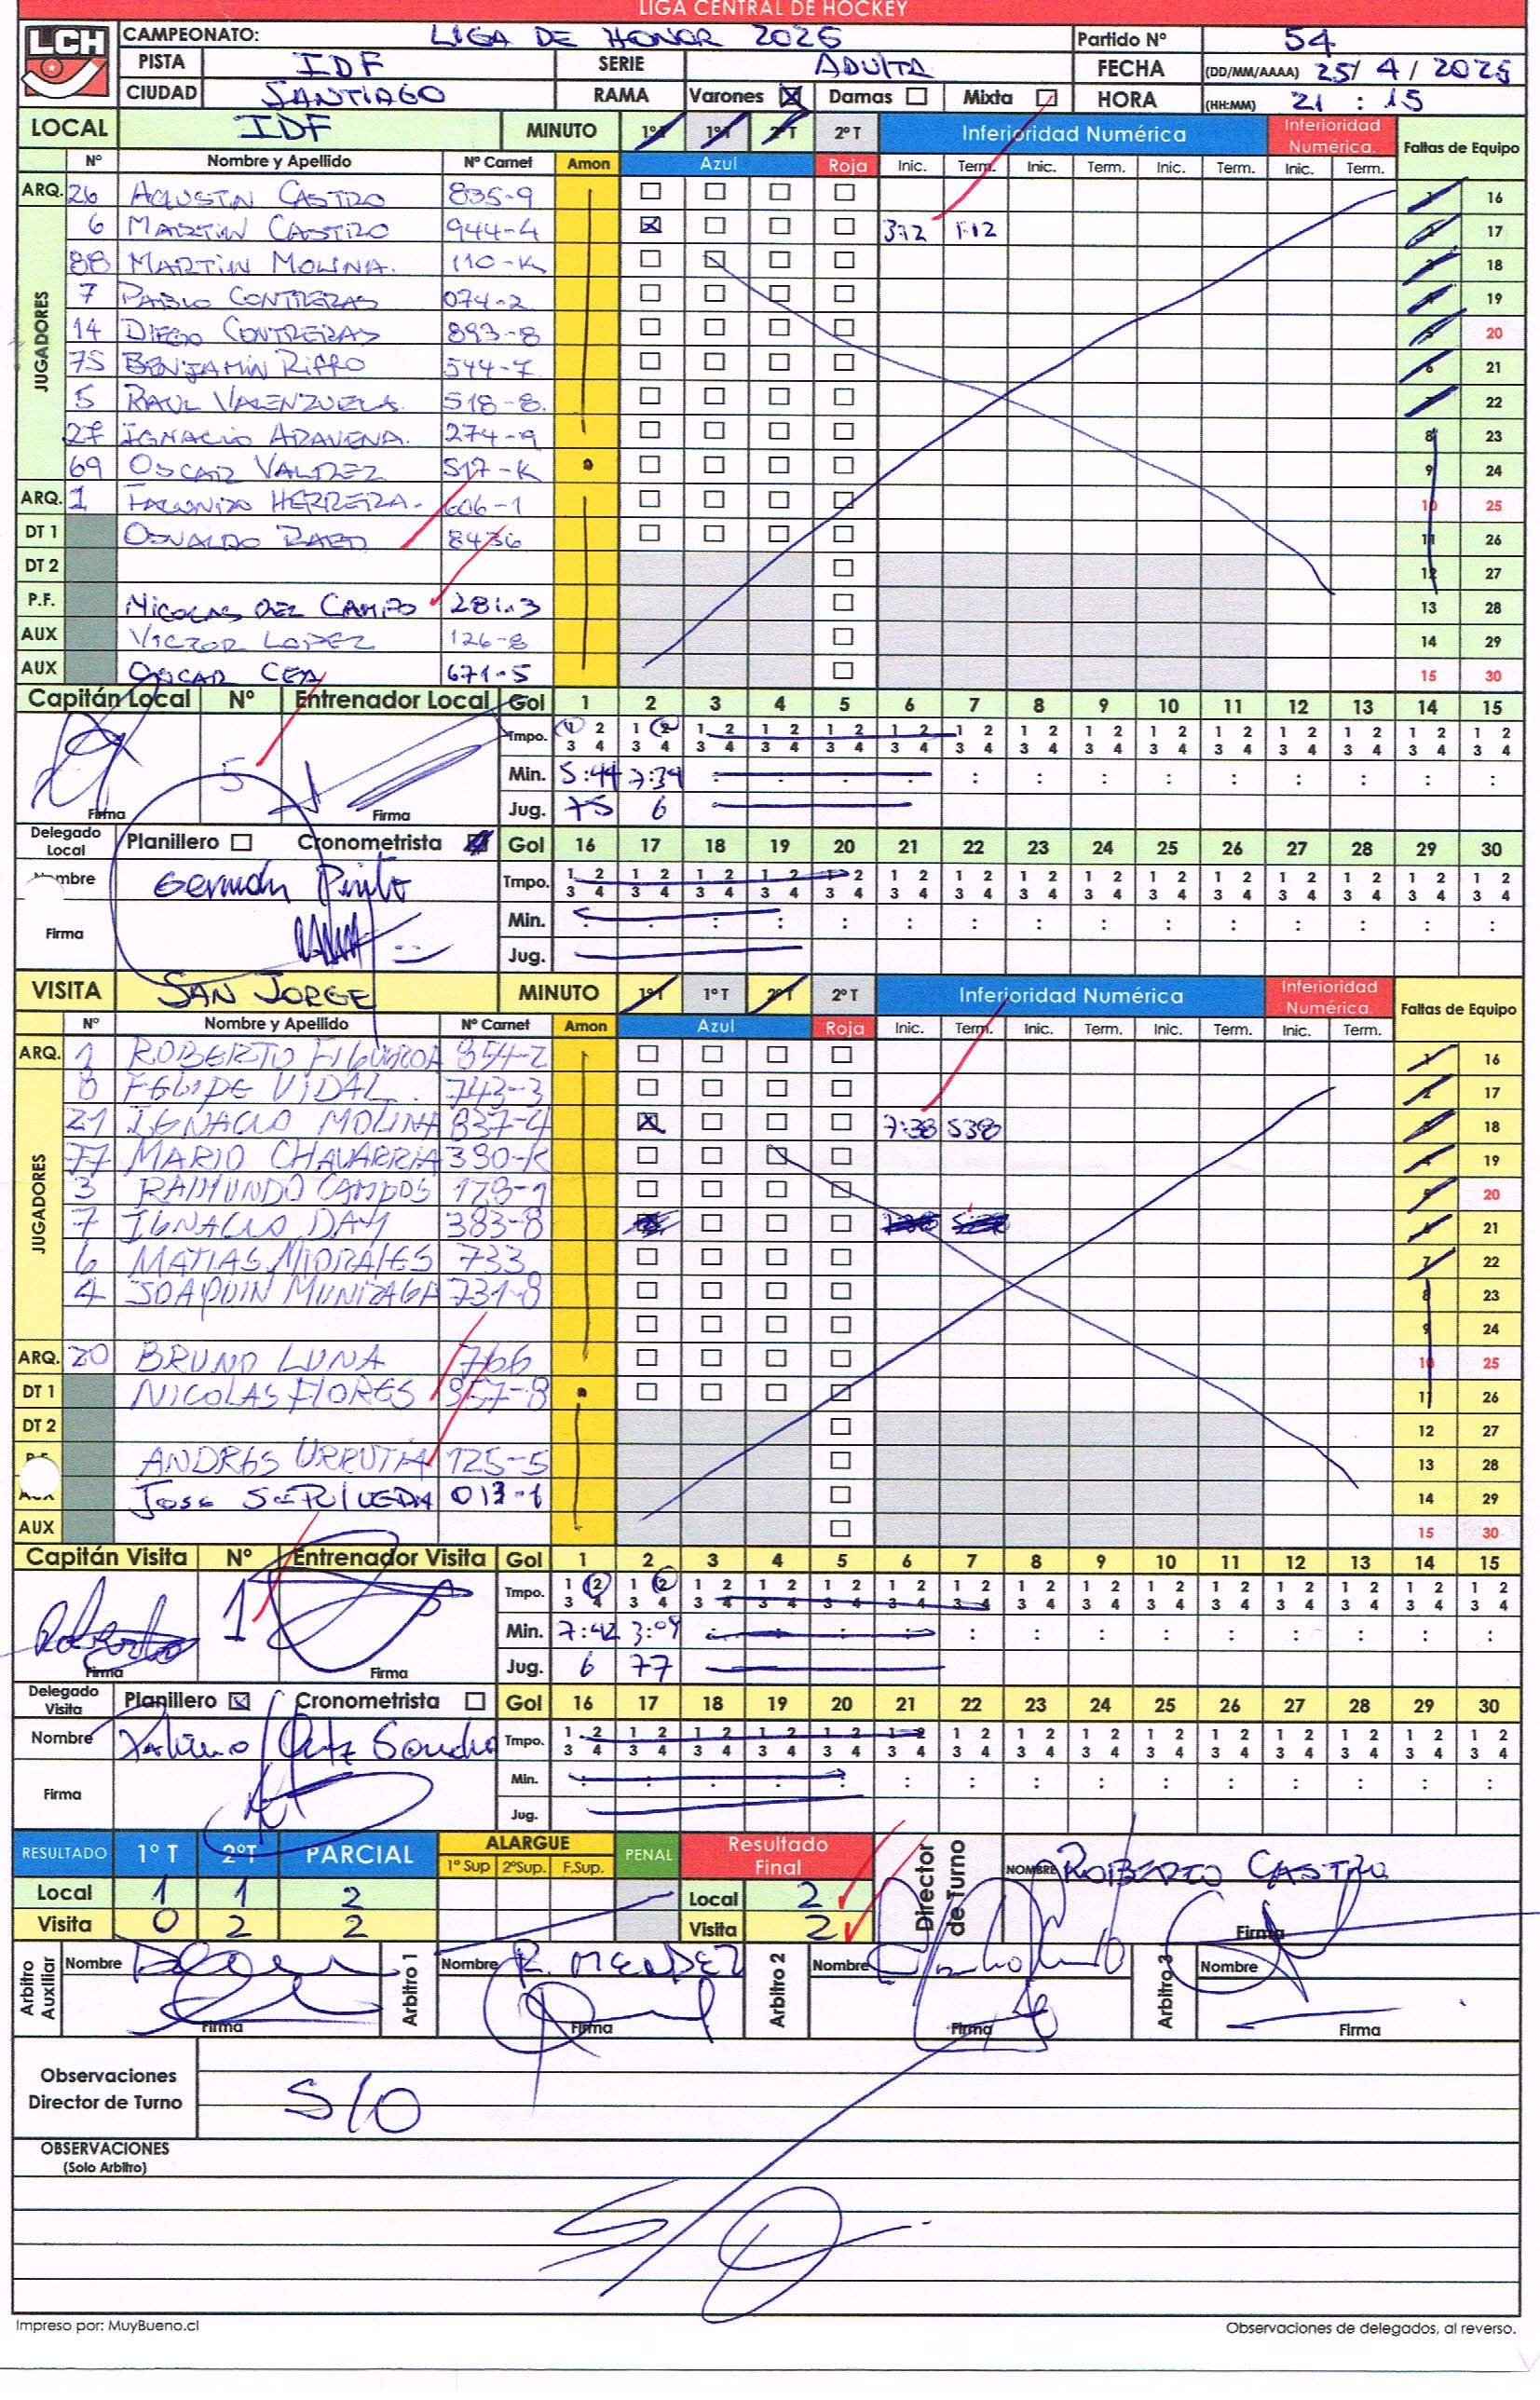 LIGA CENTRAL DE HOCKEY
LCH
CAMPEONATO: LIGA DE HONOR 2025 Partido Nº 54
PISTA IDF SERIE ADULTA FECHA (DD/MM/AAAA) 25/ 4 / 2025
CIUDAD SANTIAGO RAMA Varones Damas Mixta HORA (HH:MM) 21 : 15
LOCAL IDF MINUTO 1ºT 1ºT 2ºT 2ºT Inferioridad Numérica Inferioridad Numérica. Faltas de Equipo
Nº Nombre y Apellido Nº Carnet Amon Azul Roja Inic. Term. Inic. Term. Inic. Term. Inic. Term.
ARQ. 26 AGUSTIN CASTRO 835-9 1 16
JUGADORES
6 MARTIN CASTRO 944-4 3:12 1:12 2 17
88 MARTIN MOLINA. 110-K 3 18
7 PABLO CONTRERAS 074-2 4 19
14 DIEGO CONTRERAS 893-8 5 20
75 BENJAMIN RIFFO 544-7 6 21
5 RAUL VALENZUELA. 518-8. 7 22
27 IGNACIO ARAVENA. 274-9 8 23
69 OSCAR VALDEZ 517-K 9 24
ARQ. 1 FACUNDO HERRERA. 606-1 10 25
DT 1 OSVALDO RAED 8436 11 26
DT 2 12 27
P.F. NICOLAS DEL CAMPO 281-3 13 28
AUX VICTOR LOPEZ 126-8 14 29
AUX OSCAR CEA 671-5 15 30
Capitán Local Nº Entrenador Local Gol 1 2 3 4 5 6 7 8 9 10 11 12 13 14 15
Tmpo. 1 2 3 4 1 2 3 4 1 2 3 4 1 2 3 4 1 2 3 4 1 2 3 4 1 2 3 4 1 2 3 4 1 2 3 4 1 2 3 4 1 2 3 4 1 2 3 4 1 2 3 4 1 2 3 4 1 2 3 4
5 Min. 5:44 7:39 : : : : : : : : : : : : :
Firma Firma Jug. 75 6
Delegado Local Planillero Cronometrista Gol 16 17 18 19 20 21 22 23 24 25 26 27 28 29 30
Nombre Germán Pinto Tmpo. 1 2 3 4 1 2 3 4 1 2 3 4 1 2 3 4 1 2 3 4 1 2 3 4 1 2 3 4 1 2 3 4 1 2 3 4 1 2 3 4 1 2 3 4 1 2 3 4 1 2 3 4 1 2 3 4 1 2 3 4
Firma Min. : : : : : : : : : : : : : : :
Jug.
VISITA SAN JORGE MINUTO 1ºT 1ºT 2ºT 2ºT Inferioridad Numérica Inferioridad Numérica. Faltas de Equipo
Nº Nombre y Apellido Nº Carnet Amon Azul Roja Inic. Term. Inic. Term. Inic. Term. Inic. Term.
ARQ. 1 ROBERTO FIGUEROA 854-2 1 16
JUGADORES
8 FELIPE VIDAL. 743-3 2 17
21 IGNACIO MOLINA 837-4 7:38 538 3 18
77 MARIO CHAVARRIA 390-K 4 19
3 RAIMUNDO CAMPOS 178-1 5 20
7 IGNACIO DAY 383-8 6 21
6 MATIAS MORALES 733 7 22
4 JOAQUIN MUNIZAGA 731-8 8 23
9 24
ARQ. 20 BRUNO LUNA 766 10 25
DT 1 NICOLAS FLORES 957-8 11 26
DT 2 12 27
ANDRES URRUTIA 125-5 13 28
JOSE SEPULVEDA 013-1 14 29
AUX 15 30
Capitán Visita Nº Entrenador Visita Gol 1 2 3 4 5 6 7 8 9 10 11 12 13 14 15
Tmpo. 1 2 3 4 1 2 3 4 1 2 3 4 1 2 3 4 1 2 3 4 1 2 3 4 1 2 3 4 1 2 3 4 1 2 3 4 1 2 3 4 1 2 3 4 1 2 3 4 1 2 3 4 1 2 3 4 1 2 3 4
1 Min. 7:42 3:09 : : : : : : : : : : : : :
Firma Firma Jug. 6 77
Delegado Visita Planillero Cronometrista Gol 16 17 18 19 20 21 22 23 24 25 26 27 28 29 30
Nombre Tmpo. 1 2 3 4 1 2 3 4 1 2 3 4 1 2 3 4 1 2 3 4 1 2 3 4 1 2 3 4 1 2 3 4 1 2 3 4 1 2 3 4 1 2 3 4 1 2 3 4 1 2 3 4 1 2 3 4 1 2 3 4
Firma Min. : : : : : : : : : : : : : : :
Jug.
RESULTADO 1º T 2ºT PARCIAL ALARGUE 1º Sup 2ºSup. F.Sup. PENAL Resultado Final Director de Turno NOMBRE ROBERTO CASTRO
Local 1 1 2 Local 2
Visita 0 2 2 Visita 2 Firma
Arbitro Auxiliar Nombre Arbitro 1 Nombre R. MENDEZ Arbitro 2 Nombre Arbitro 3 Nombre
Firma Firma Firma Firma
Observaciones Director de Turno S/O
OBSERVACIONES
(Solo Arbitro)
S/O
Impreso por: MuyBueno.cl Observaciones de delegados, al reverso.